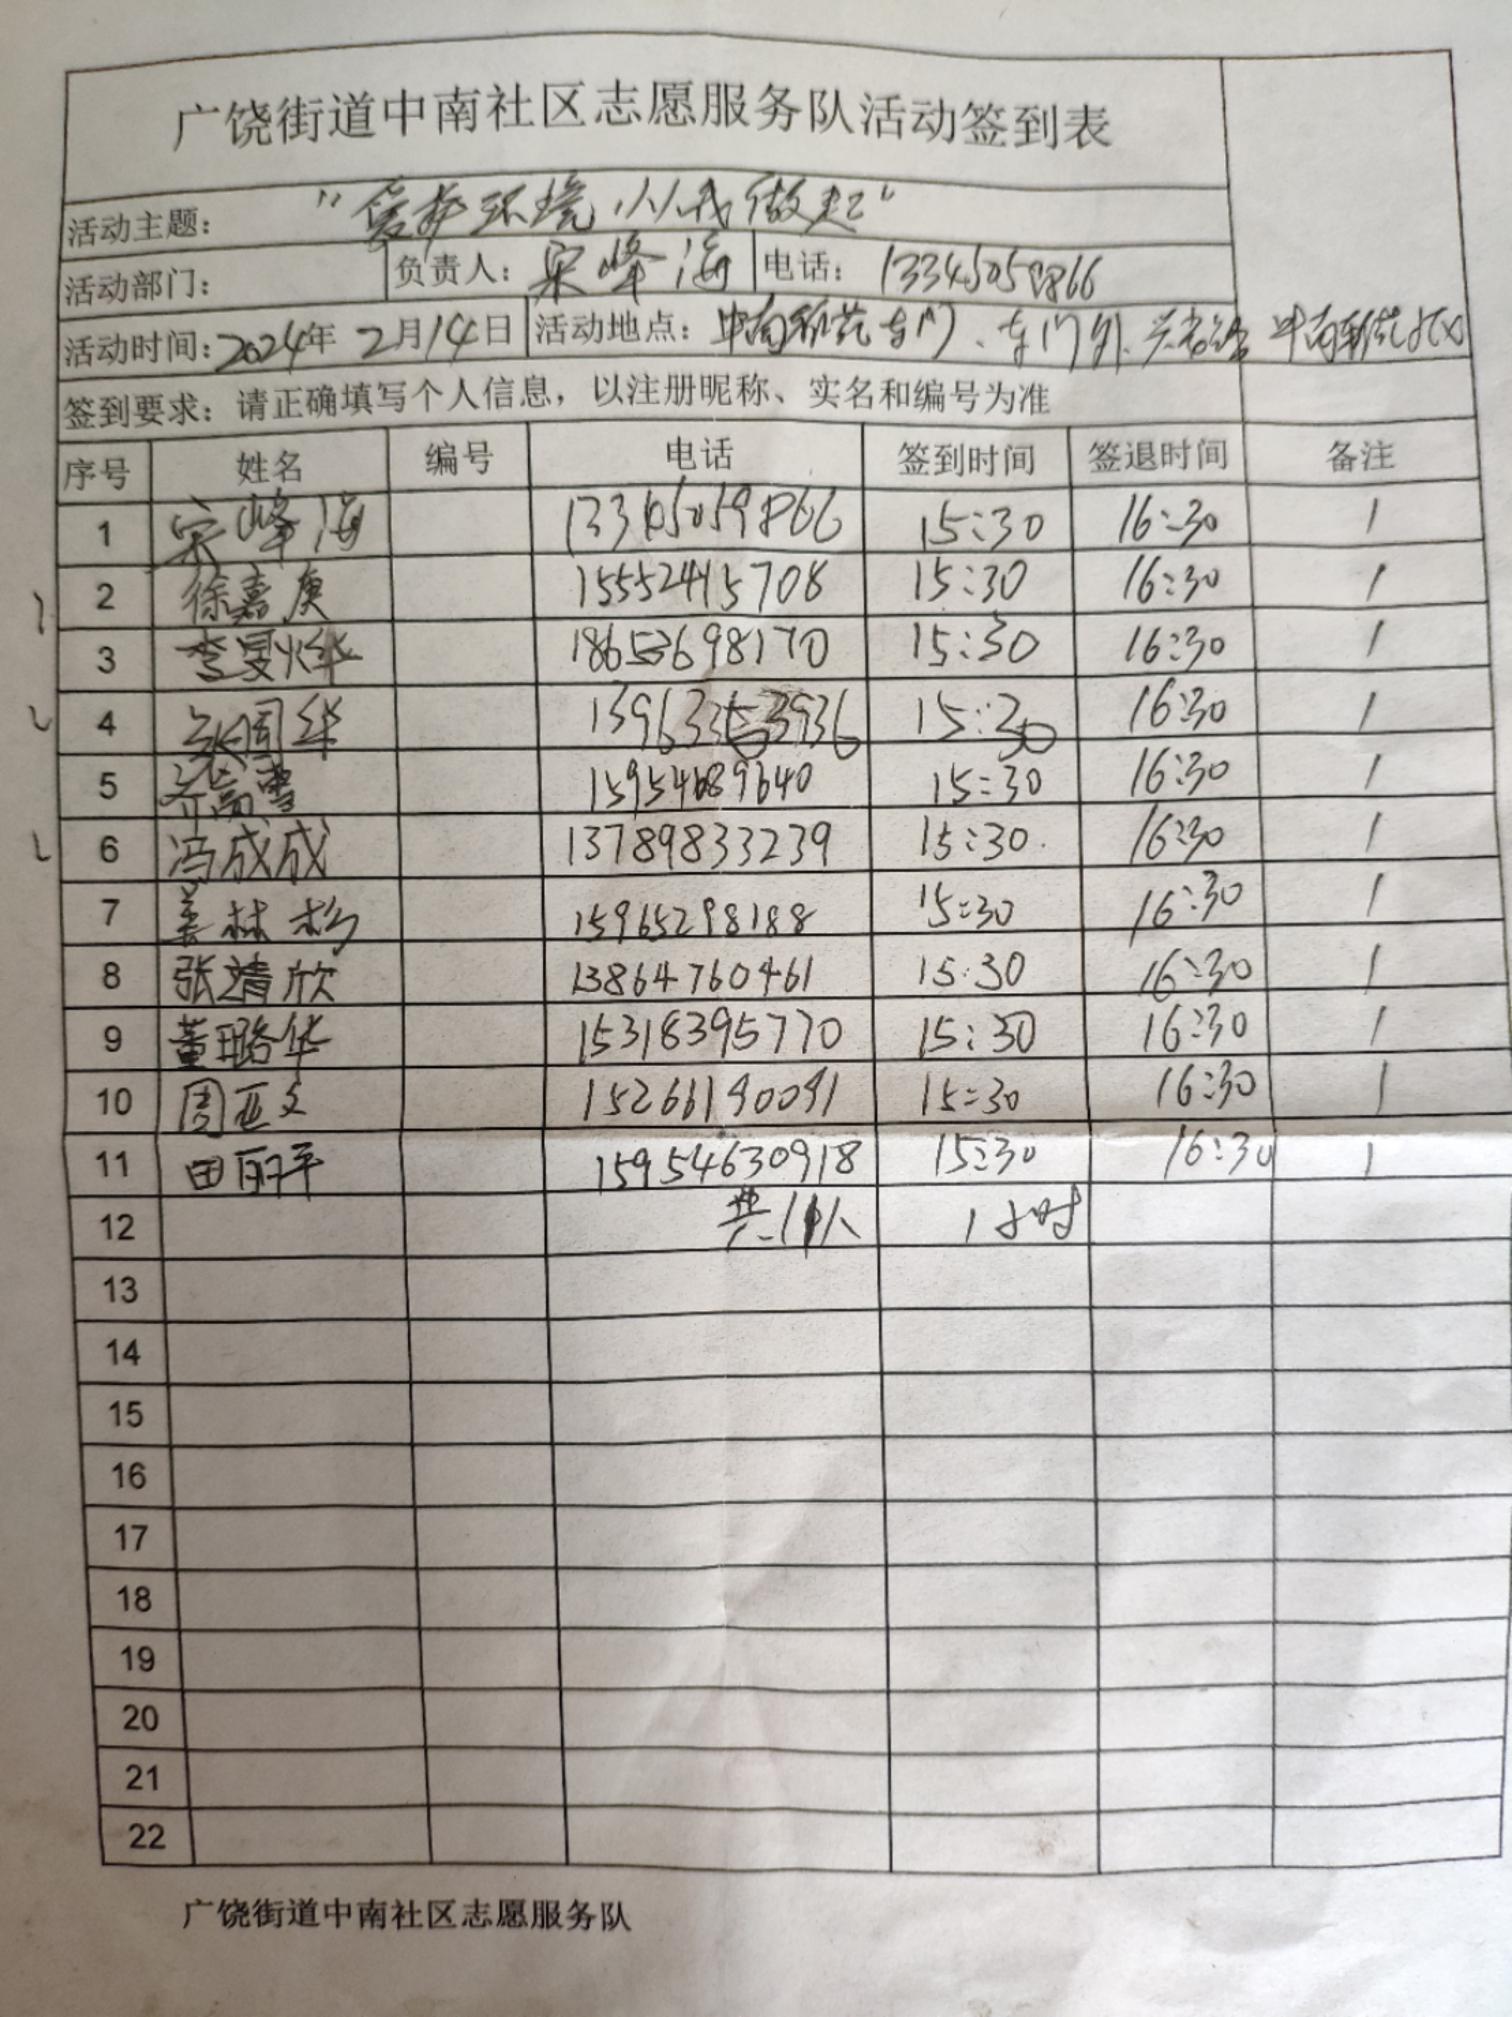 广饶街道中南社区志愿服务队活动签到表
活动主题： “爱护环境 从我做起”
活动部门： 负责人：宋峰海 电话：13345059866
活动时间：2024年 2月14日 活动地点：中南 东门、东门外、
签到要求：请正确填写个人信息，以注册昵称、实名和编号为准
序号 姓名 编号 电话 签到时间 签退时间 备注
1 宋峰海 13345059866 15:30 16:30 1
2 徐嘉庚 15552415708 15:30 16:30 1
3 李旻烨 18653698170 15:30 16:30 1
4 张周华 15:30 16:30 1
5 15954689640 15:30 16:30 1
6 冯成成 13789833239 15:30 16:30 1
7 姜林杉 15965298188 15:30 16:30 1
8 张靖欣 13864760461 15:30 16:30 1
9 董璐华 15318395770 15:30 16:30 1
10 周亚文 15266190091 15:30 16:30 1
11 田丽平 15954630918 15:30 16:30 1
12 共11人 1小时
13
14
15
16
17
18
19
20
21
22
广饶街道中南社区志愿服务队